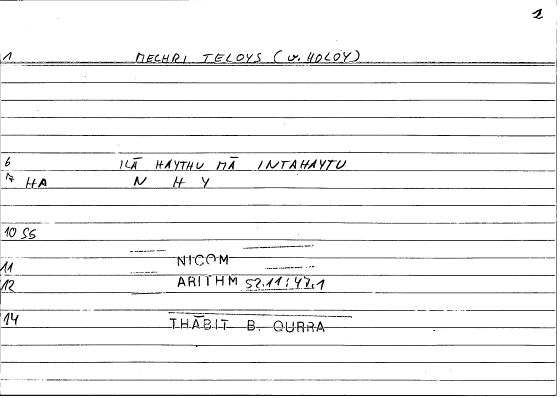 1
1 MECHRI TELOYS (v. HOLOY)
6 ILĀ HAYTHU MĀ INTAHAYTU
7 HA N H Y
10 SS
11 NICOM
12 ARITHM 52.11; 47.1
14 THĀBIT B. QURRA